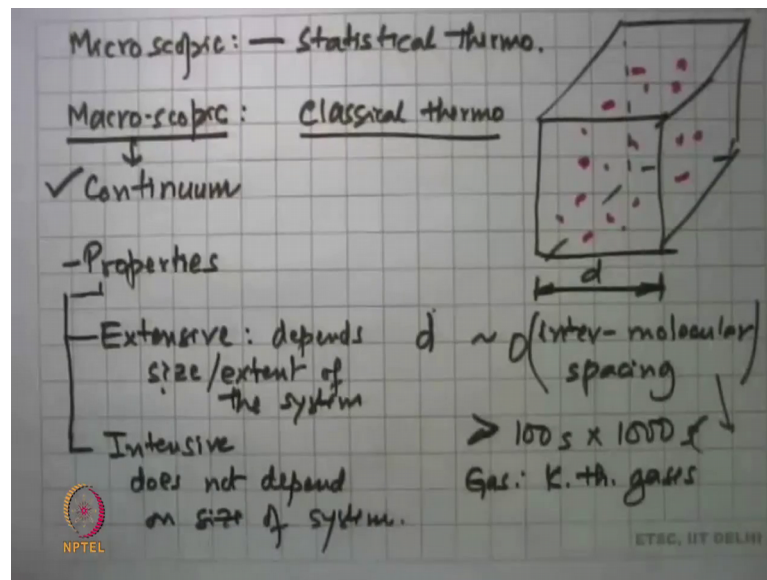 Microscopic: — Statistical thermo.
Macro-scopic: Classical thermo
✓ Continuum
- Properties
- Extensive: depends
size/extent of
the system
- Intensive
does not depend
on size of system.
d
d ~ O(inter-molecular
spacing)
> 100s x 1000s
Gas: K. th. gases
NPTEL
ETSC, IIT DELHI